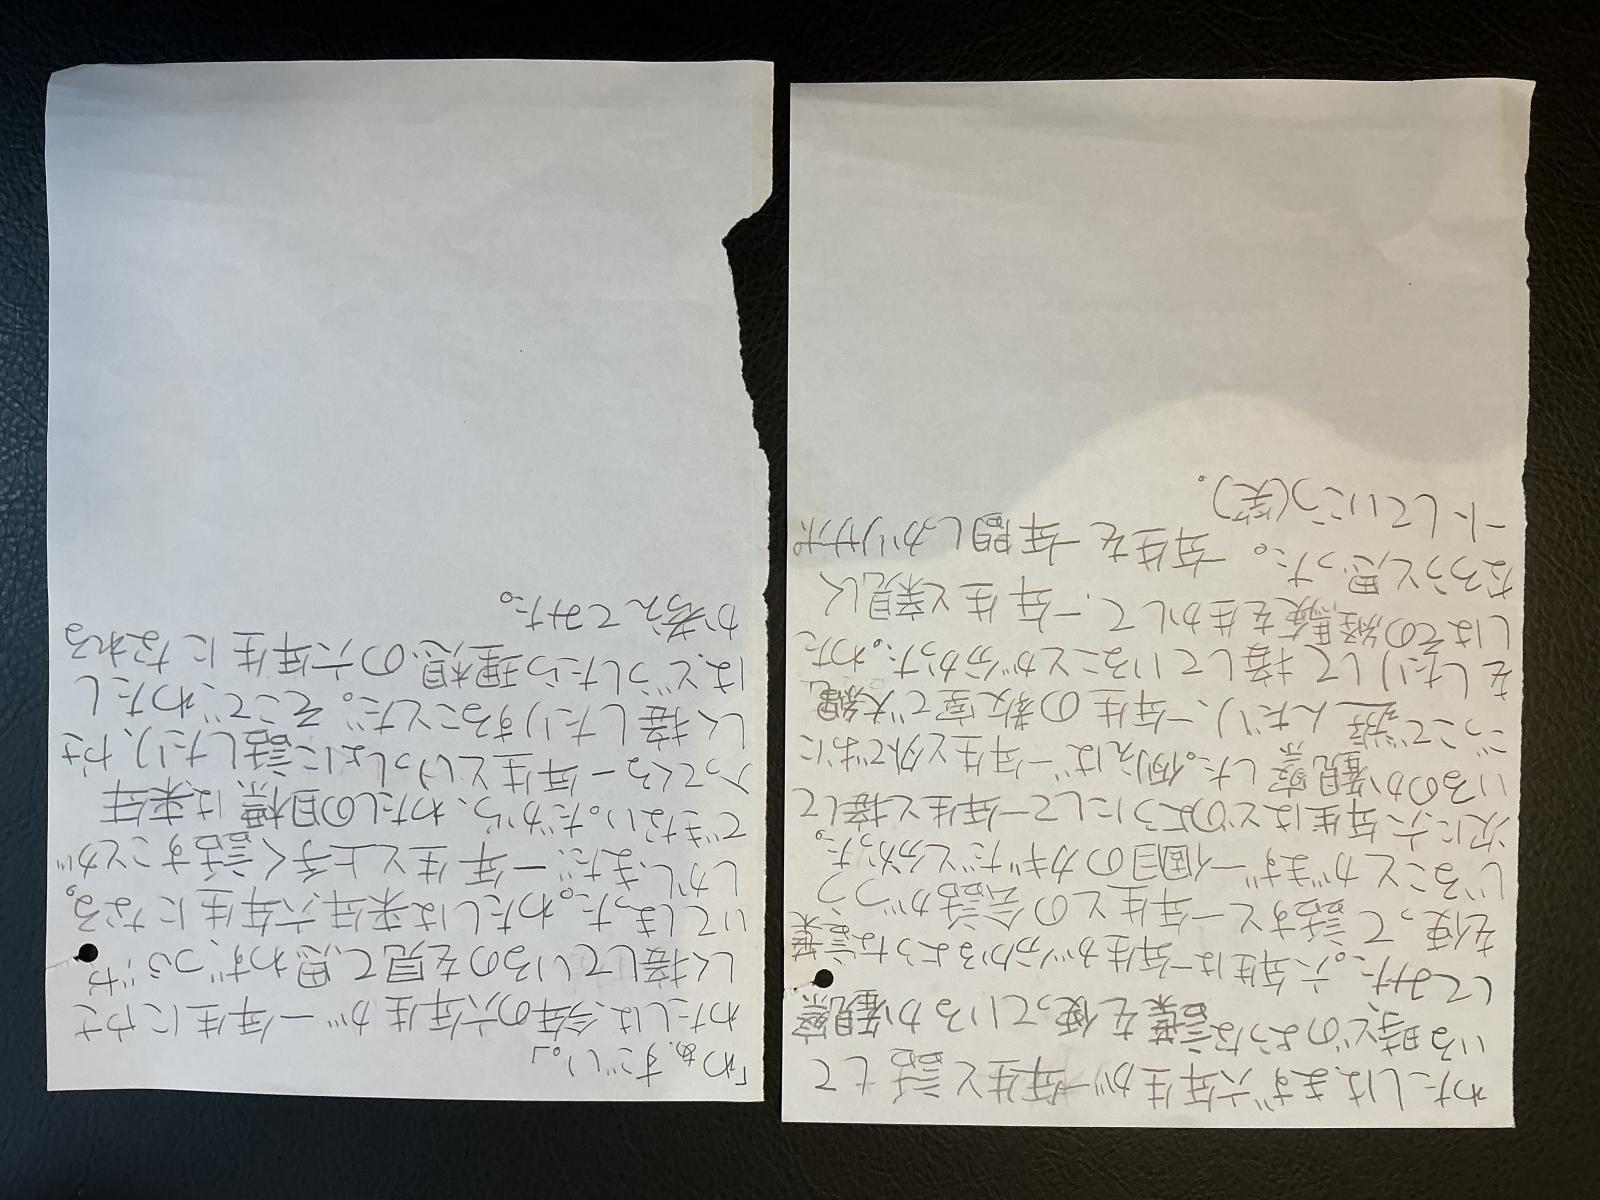 「わぁ、すごい。」
わたしは、今年の六年生が一年生にやさ
しく接しているのを見て、思わずつぶや
いてしまった。わたしは来年六年生になる。
しかし、まだ、一年生と上手く話すことが
できない。だから、わたしの目標は来年
入ってくる一年生といっしょに話したり、やさ
しく接したりすることだ。そこで、わたし
はどうしたら理想の六年生になれる
か考えてみた。
わたしは、まず六年生が一年生と話して
いる時、どのような言葉を使っているか観察
してみた。六年生は一年生が分かるような言葉
を使って話すと一年生との会話がつう
じることがまず一個目のカギだと分かった。
次に、六年生はどのようにして一年生と接して
いるのか観察した。例えば一年生と外でおに
ごっこで遊んだり、一年生の教室で大縄
をしたりして接していることが分かった。わた
しはその経験を生かして、一年生と親しく
なろうと思った。一年生を一年間しかりサポ
ートしていこう(笑)。